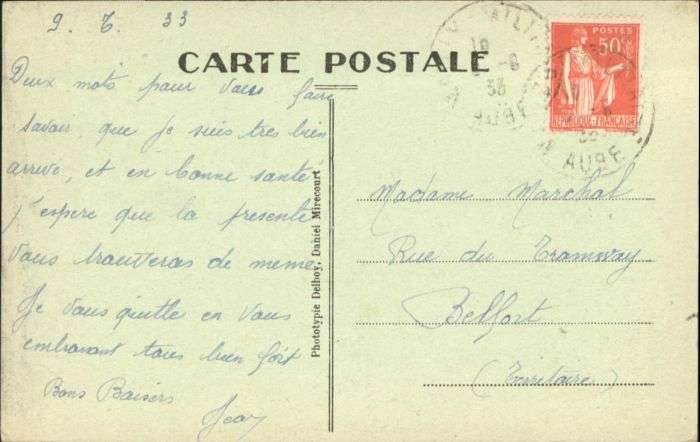 9. 6. 33
CARTE POSTALE
Deux mots pour vous faire
savoir que je suis tres bien
arrivé, et en bonne santé
j'espere que la presente
vous trouveras de meme
Je vous quitte en vous
embrassant tous bien fort
Bons Baisers
Jean
Phototypie Delboy, Daniel Mirecourt
POSTES
50c
REPUBLIQUE FRANÇAISE
33
AUBE
AUBE
Madame Marchal
Rue du Tramway
Belfort
(Territoire)